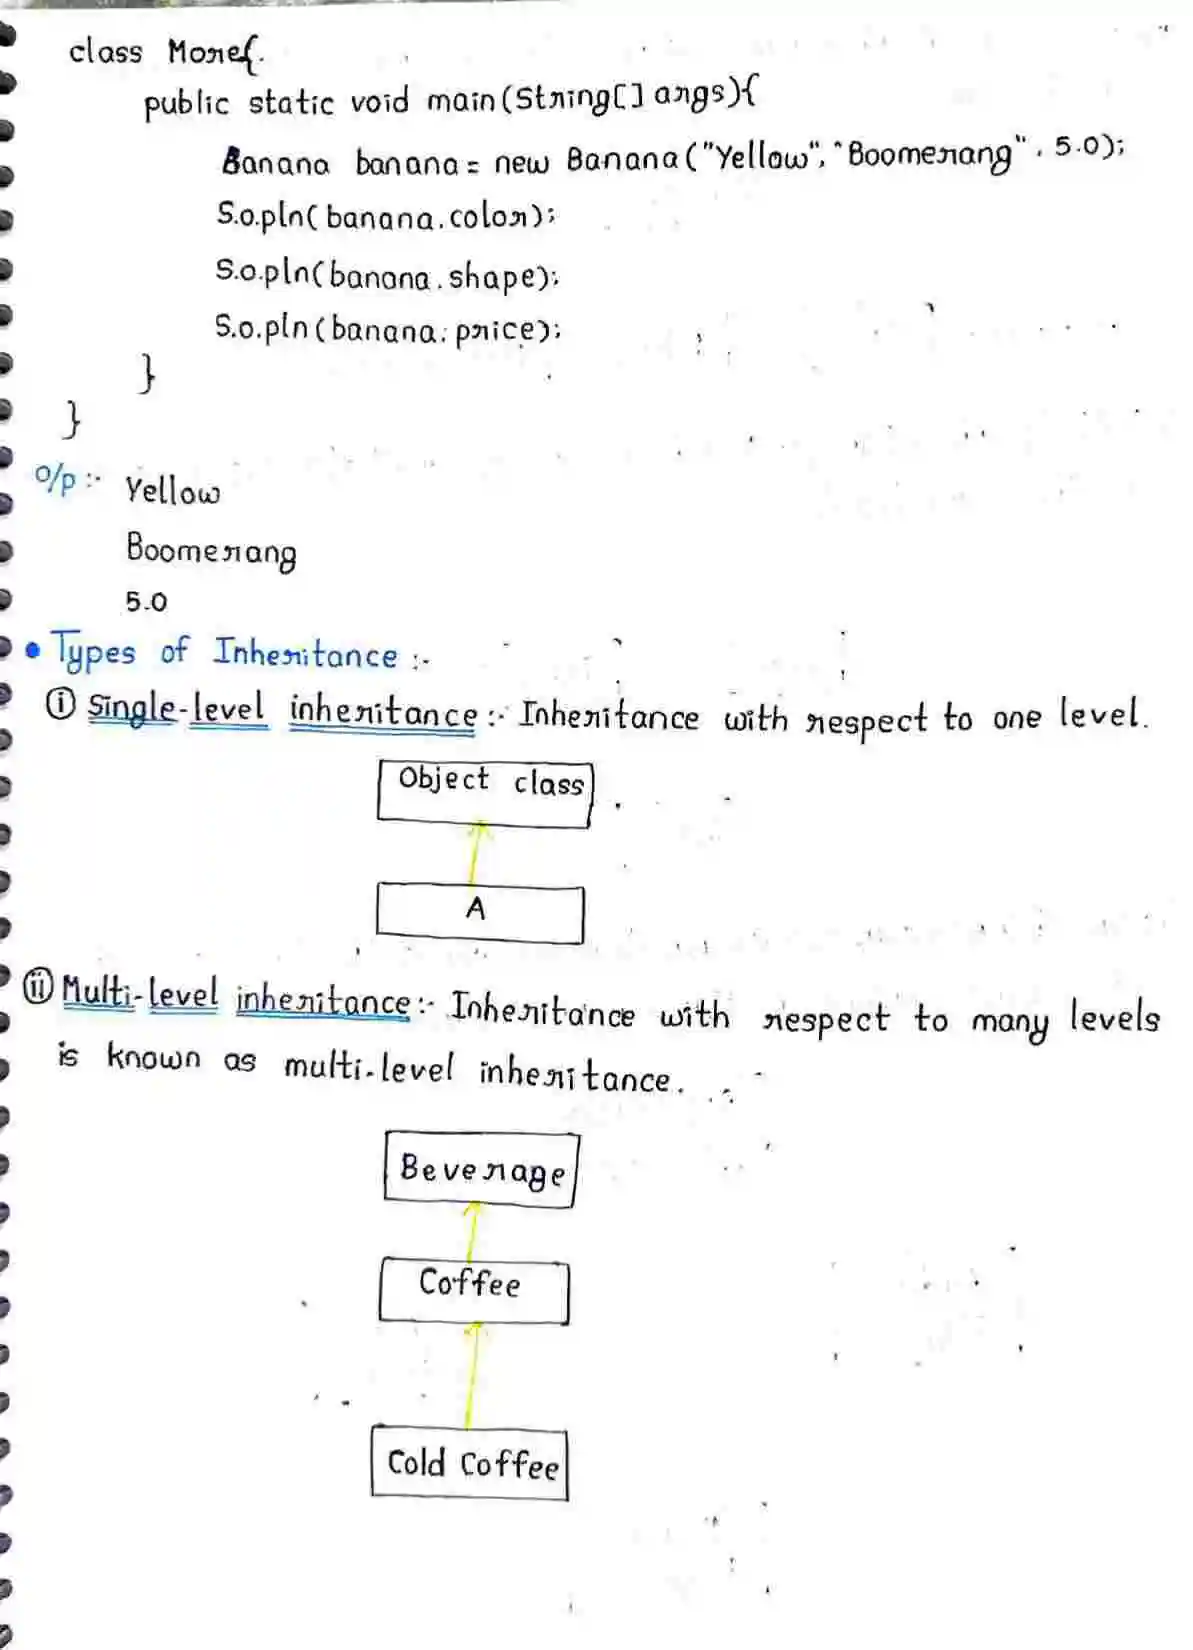 class More{
public static void main(String[] args){
Banana banana = new Banana("Yellow", "Boomerang", 5.0);
S.o.pln(banana.color);
S.o.pln(banana.shape);
S.o.pln(banana.price);
}
}
o/p :- Yellow
Boomerang
5.0
• Types of Inheritance :-
(i) Single-level inheritance :- Inheritance with respect to one level.
Object class
A
(ii) Multi-level inheritance :- Inheritance with respect to many levels
is known as multi-level inheritance.
Beverage
Coffee
Cold Coffee